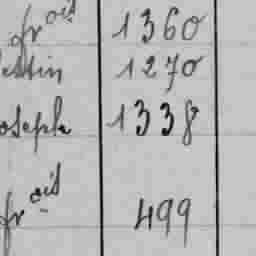 frois 1360
estin 1270
oseph 1338
frois 499